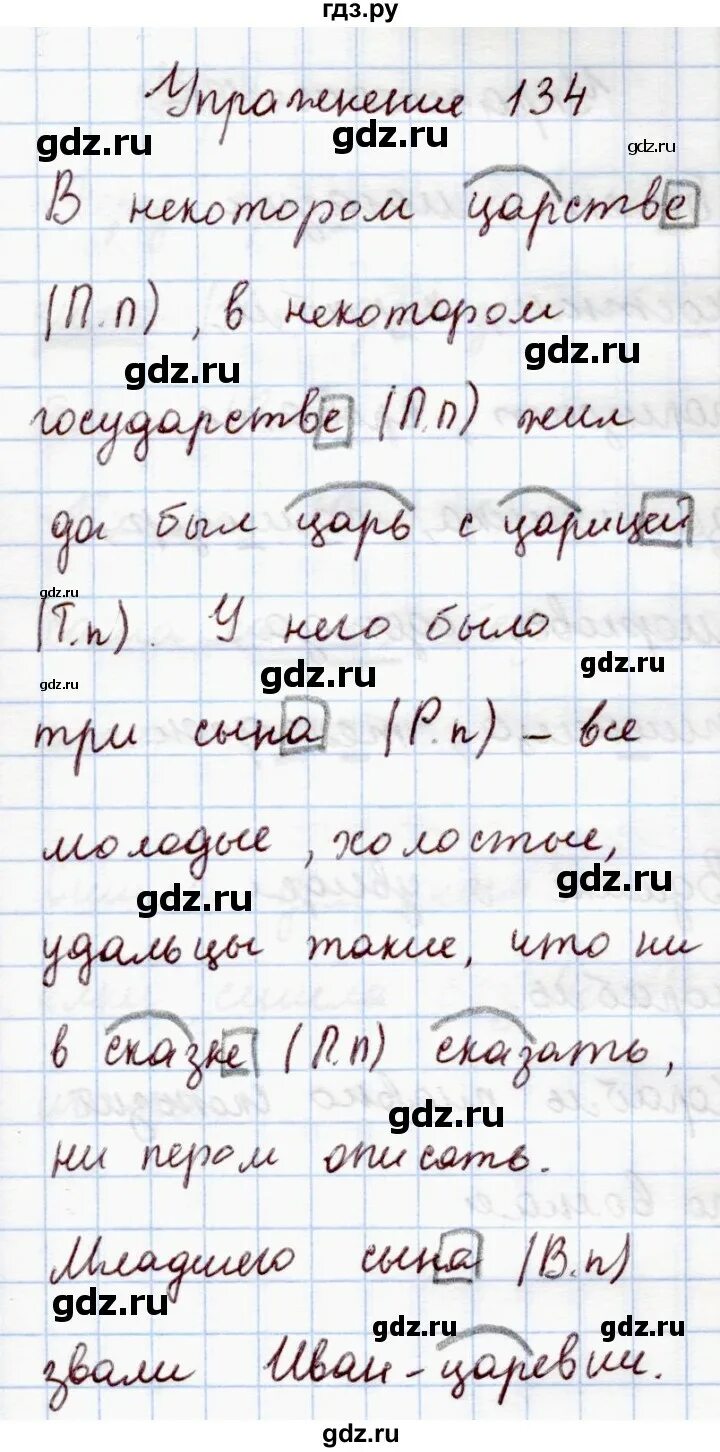 гдз.ру
Упражнение 134
gdz.ru gdz.ru gdz.ru
В некотором царстве
(П.п), в некотором
gdz.ru gdz.ru
государстве (П.п) жил
да был царь с царицей
gdz.ru
(Т.п). У него было
gdz.ru gdz.ru gdz.ru
три сына (Р.п) – все
молодые, холостые,
gdz.ru gdz.ru
удальцы такие, что ни
в сказке (П.п) сказать,
gdz.ru
ни пером описать.
Младшего сына (В.п)
gdz.ru gdz.ru gdz.ru
звали Иван-царевич.
gdz.ru